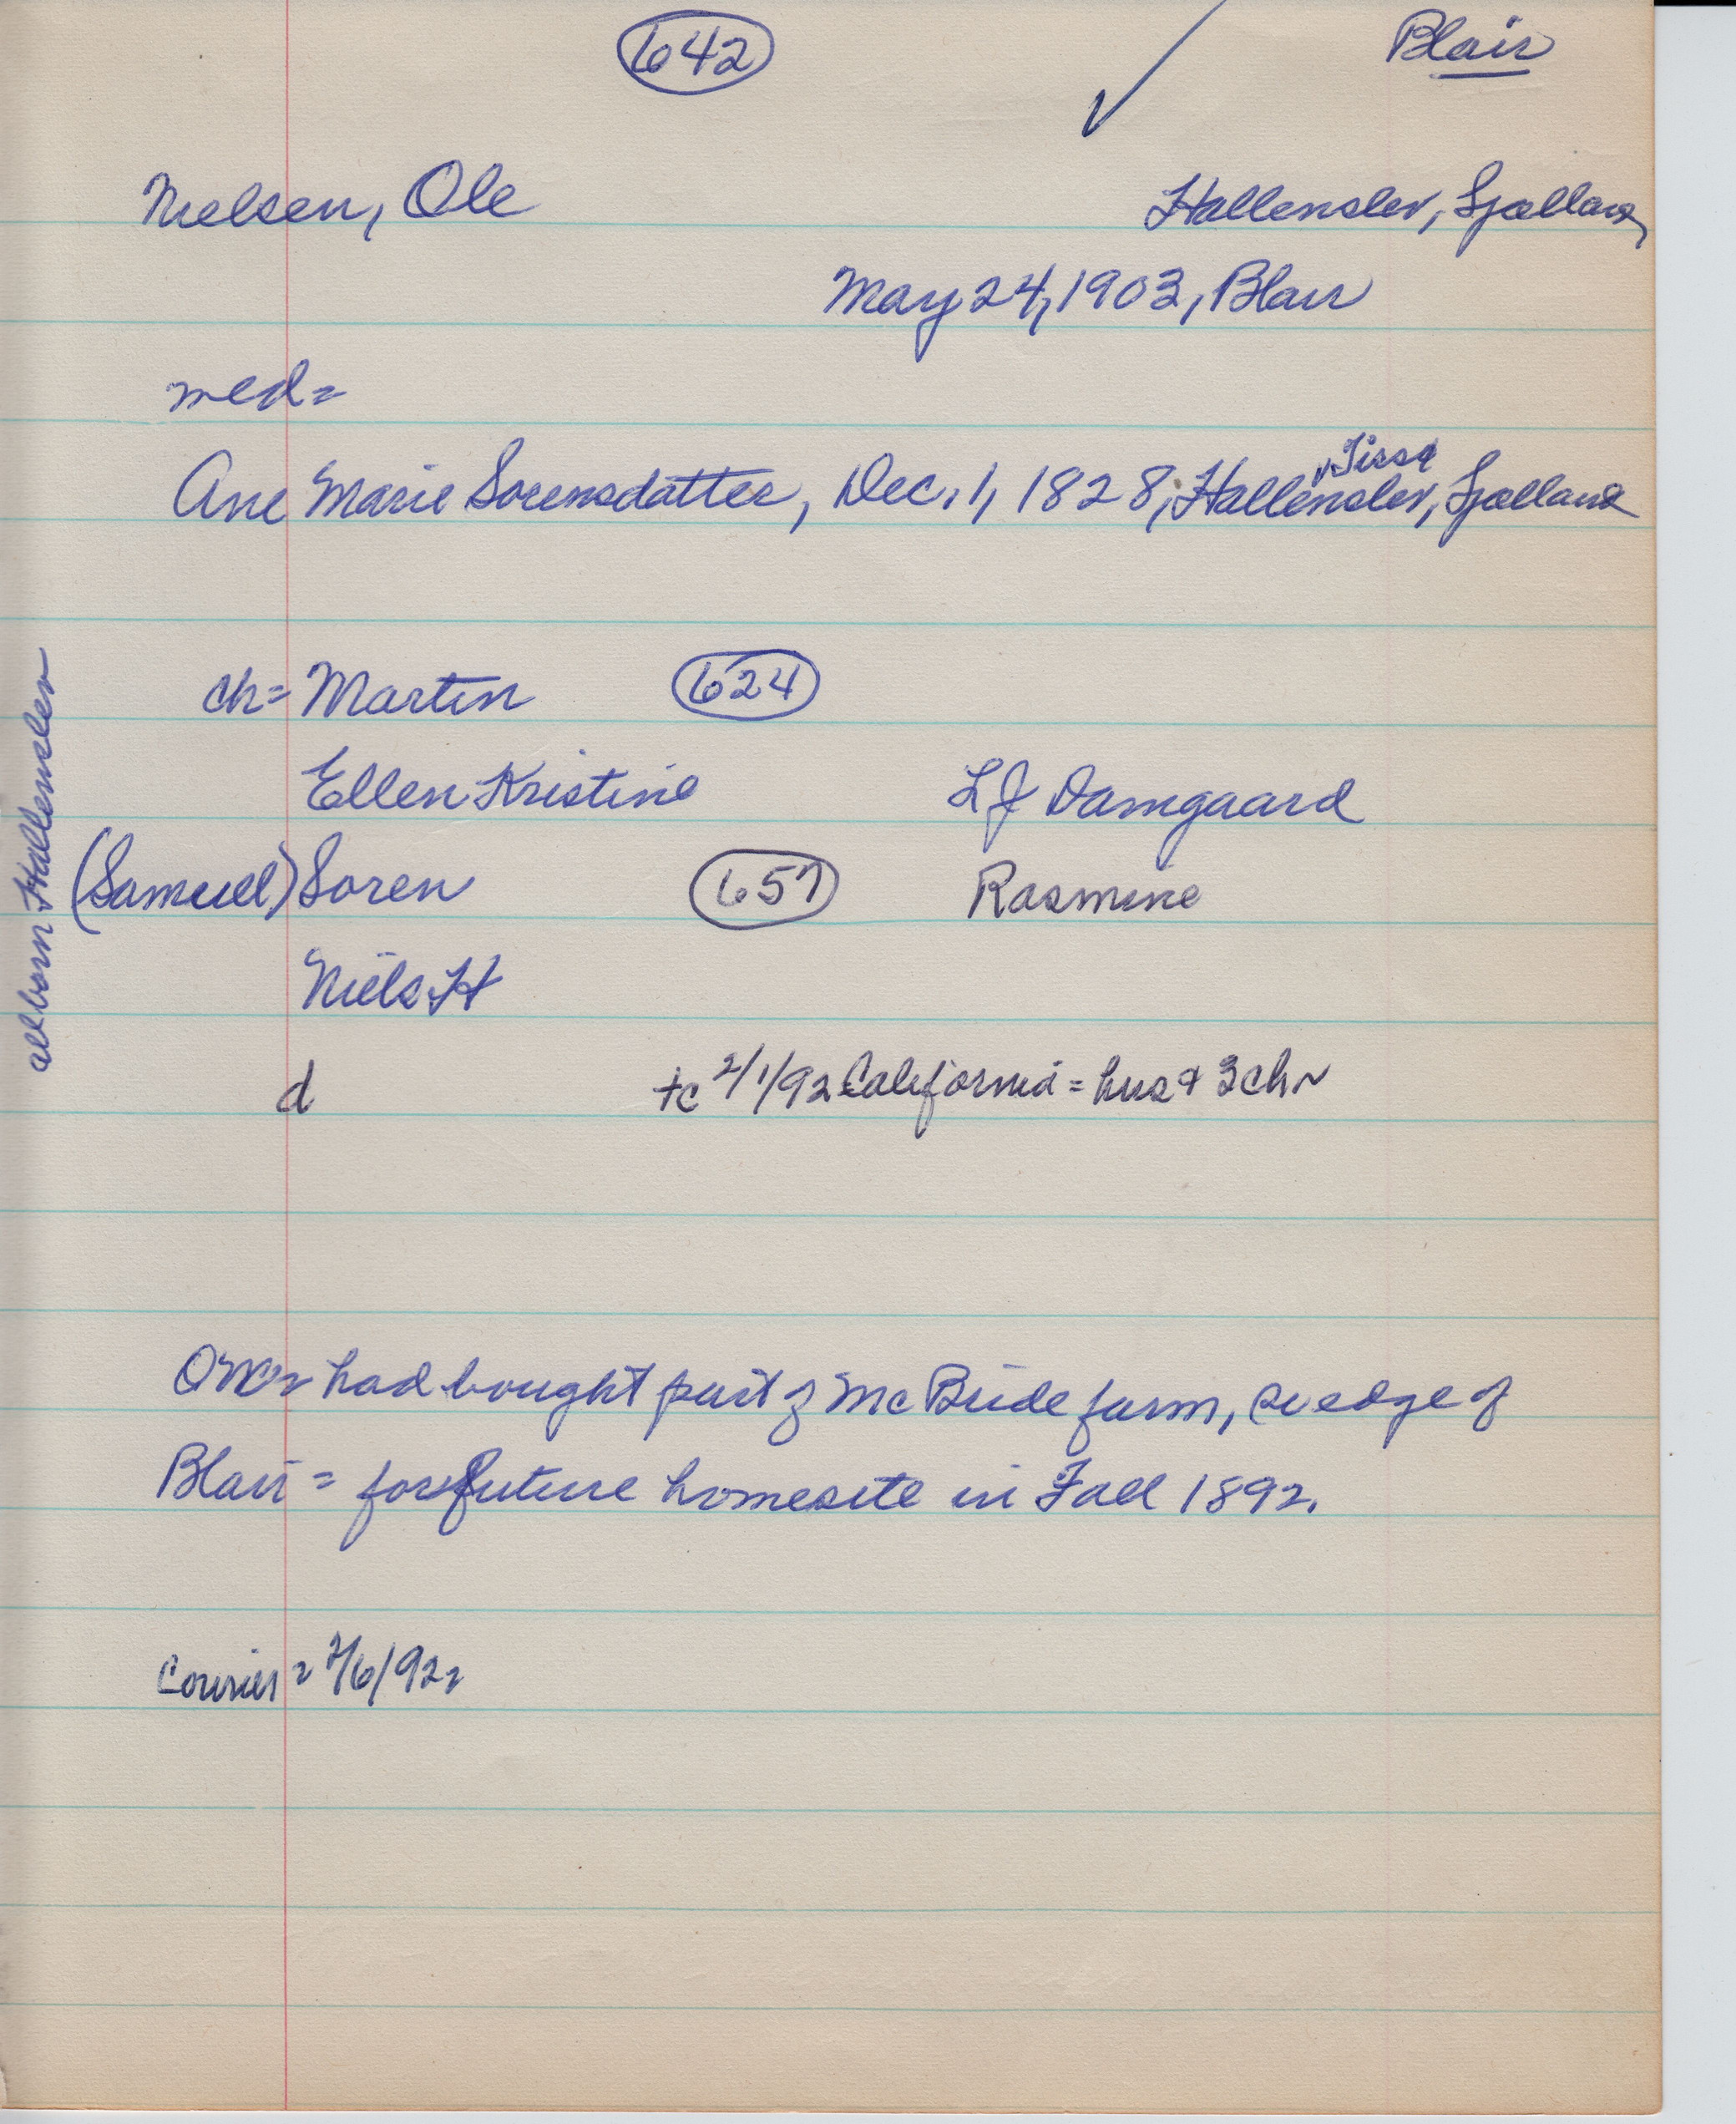 642
Blair
Nielsen, Ole Hallenslev, Sjælland
May 24, 1903, Blair
med=
Tissø
Ane Marie Sorensdatter, Dec. 1, 1828, Hallenslev, Sjælland
ch= Martin 624
Ellen Kristine L J Damgaard
(Samuel) Soren 657 Rasmine
Niels H
d tc 2/1/92 California = hus & 3 ch
all born Hallenslev
had bought part of McBride farm, edge of
Blair = for future homesite in Fall 1892.
Courier = 2/6/92